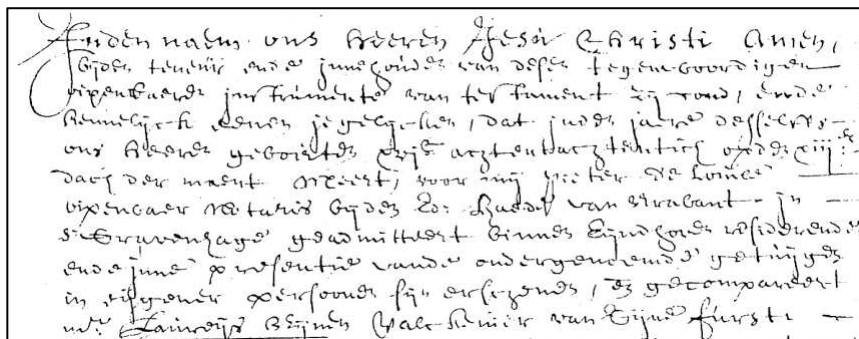 Inden naem ons heeren Jhesu Christi Amen,
bijden teneur ende innehouden van desen tegenwoordigen
openbaeren instrumente van testament zij cond, ende
kennelijck eenen jegelijcken, dat inden jaere desselffs
ons heeren geboorten achtentachtentich opden xiiijen
dach der maent Meert, voor mij Pieter de
openbaer Notaris bijden Ed: Raede van Brabant in
s'Gravenhage geadmitteert binnen Eijndhoven residerende
ende inne presentie vande ondergenoemde getuijgen
in eijgener persoonen sijn erschenen, gecompareert
Valckenier van Sijne furst: